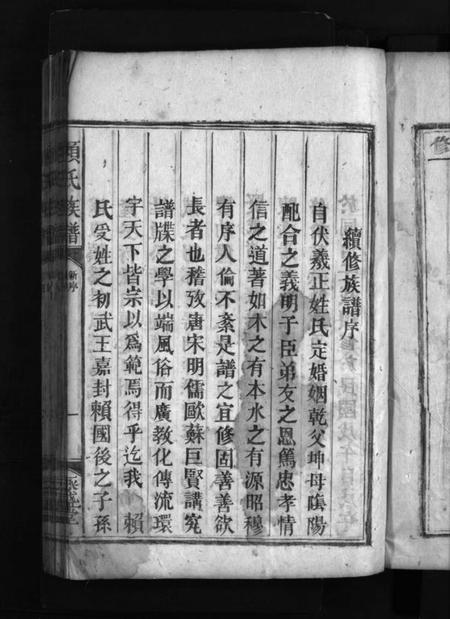 續修族譜序
自伏羲正姓氏定婚姻乾父坤母隂陽
配合之義明子臣弟友之恩篤忠孝情
信之道著如木之有本水之有源昭穆
有序人倫不紊是譜之宜修固善善欲
長者也稽攷唐宋明儒歐蘇巨賢講究
譜牒之學以端風俗而廣教化傳流環
宇天下皆宗以為範焉得乎迄我 賴
氏受姓之初武王嘉封賴國後之子孫
賴氏族譜
新序
一
修